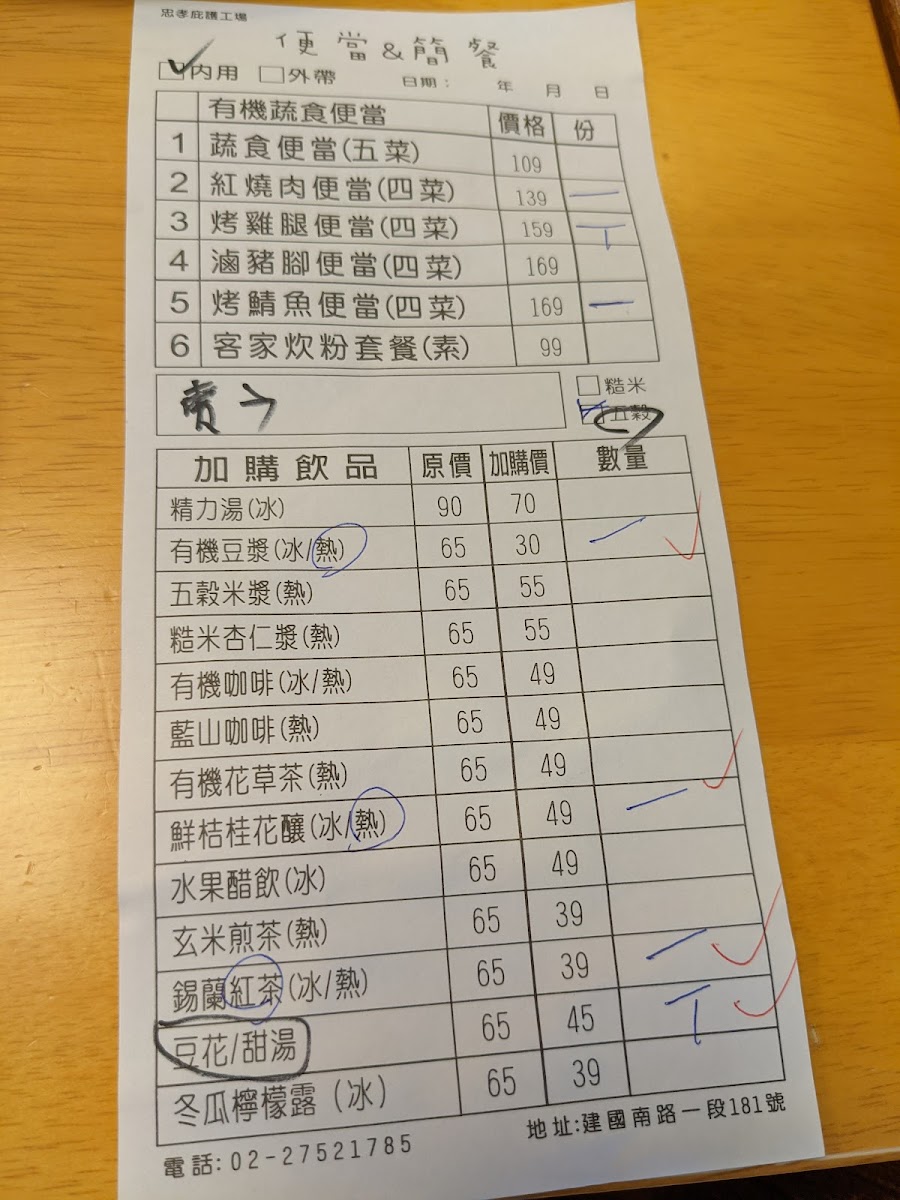 忠孝庇護工場
便當&簡餐
☑內用 □外帶 日期： 年 月 日
有機蔬食便當 價格 份
1 蔬食便當(五菜) 109
2 紅燒肉便當(四菜) 139 一
3 烤雞腿便當(四菜) 159 T
4 滷豬腳便當(四菜) 169
5 烤鯖魚便當(四菜) 169 一
6 客家炊粉套餐(素) 99
□糙米
☑五穀
加購飲品 原價 加購價 數量
精力湯(冰) 90 70
有機豆漿(冰/熱) 65 30 一
五穀米漿(熱) 65 55
糙米杏仁漿(熱) 65 55
有機咖啡(冰/熱) 65 49
藍山咖啡(熱) 65 49
有機花草茶(熱) 65 49
鮮桔桂花釀(冰/熱) 65 49 一
水果醋飲(冰) 65 49
玄米煎茶(熱) 65 39
錫蘭紅茶(冰/熱) 65 39 一
豆花/甜湯 65 45 T
冬瓜檸檬露（冰） 65 39
電話: 02-27521785 地址:建國南路一段181號